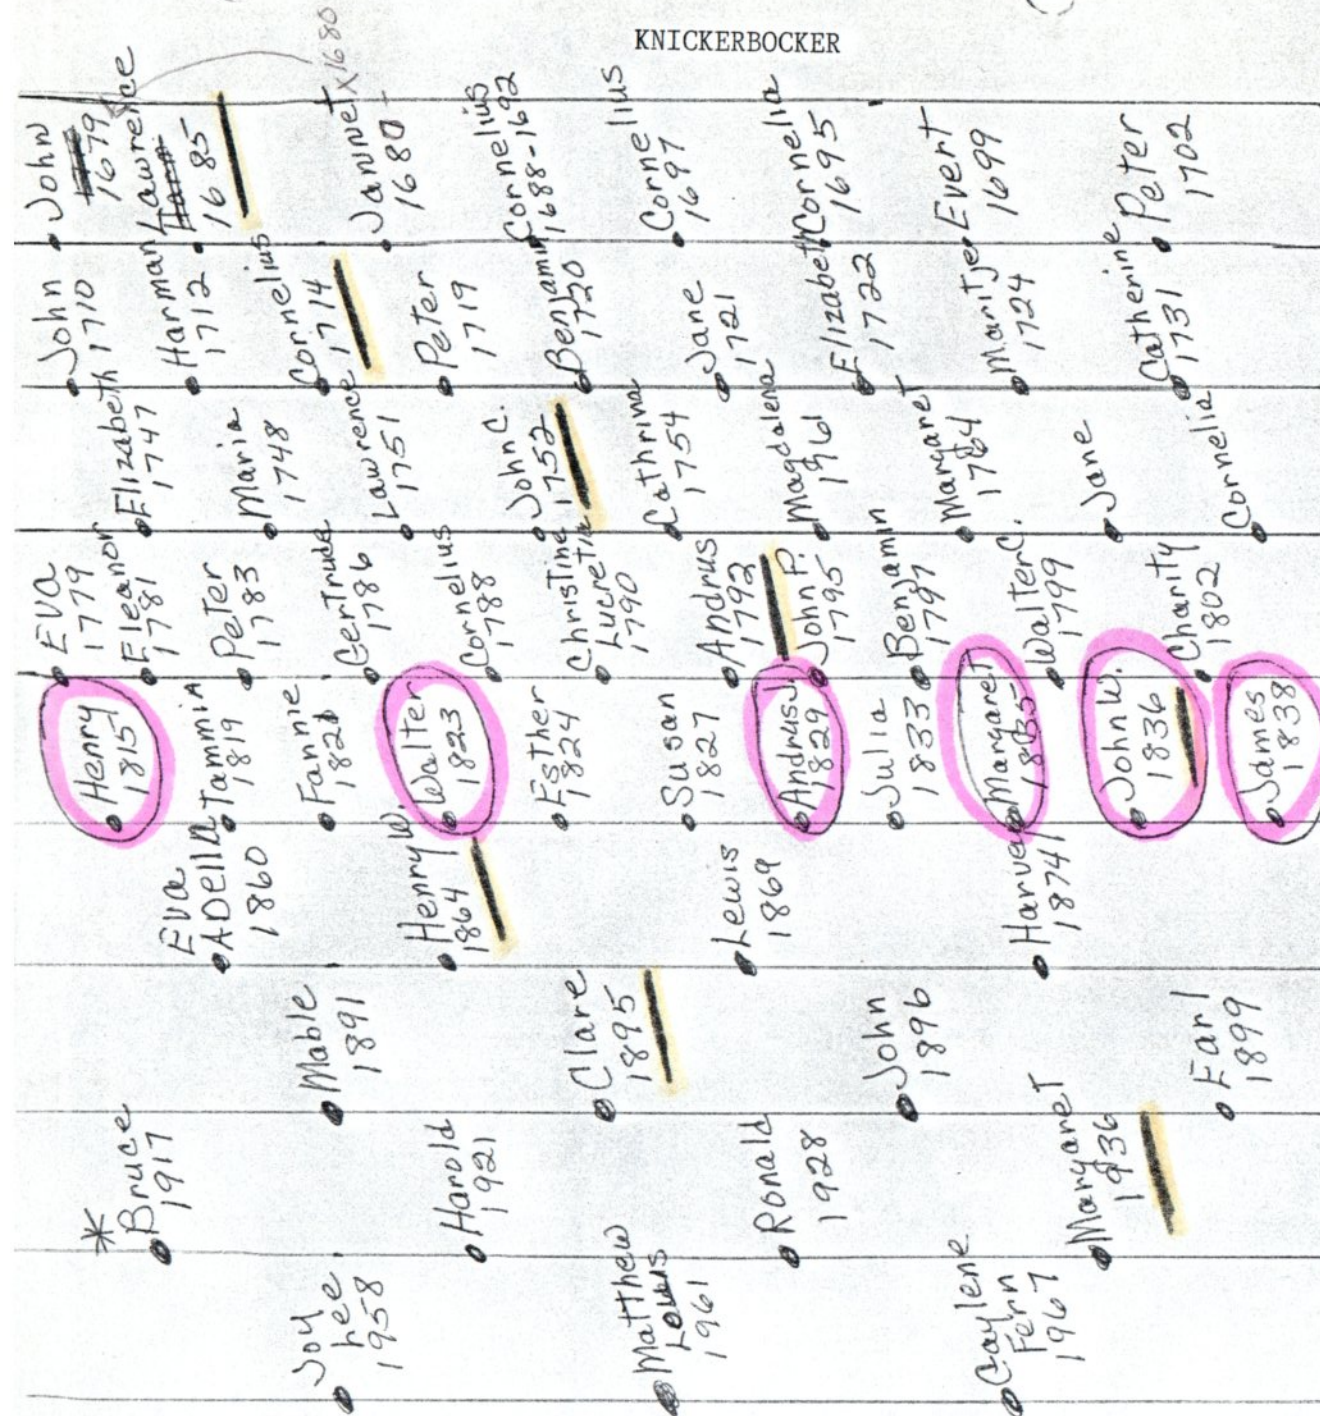 KNICKERBOCKER
John
1679
Lawrence
1685
Jannet
1680
1680
Cornelius
1688-1692
Cornelius
1697
Cornelia
1695
Evert
1699
Peter
1702
John
1710
Harman
1712
Cornelius
1714
Peter
1719
Benjamin
1720
Jane
1721
Elizabeth
1722
Maritje
1724
Catherine
1731
Elizabeth
1747
Maria
1748
Lawrence
1751
John C.
1752
Cathrina
1754
Magdalena
1761
Margaret
1764
Jane
Cornelia
Eva
1779
Eleanor
1781
Peter
1783
Gertrude
1786
Cornelius
1788
Christine
Lucretia
1790
Andrus
1792
John P.
1795
Benjamin
1797
Walter C.
1799
Charity
1802
Henry
1815
Tammia
1819
Fannie
1821
Walter
1823
Esther
1824
Susan
1827
Andrus J.
1829
Julia
1833
Margaret
1835
John W.
1836
James
1838
Eva
ADella
1860
Henry W.
1864
Lewis
1869
Harvey
1874
Mable
1891
Clare
1895
John
1896
Earl
1899
*
Bruce
1917
Harold
1921
Ronald
1928
Margaret
1936
Joy
Lee
1958
Matthew
Louis
1961
Gaylene
Fern
1967